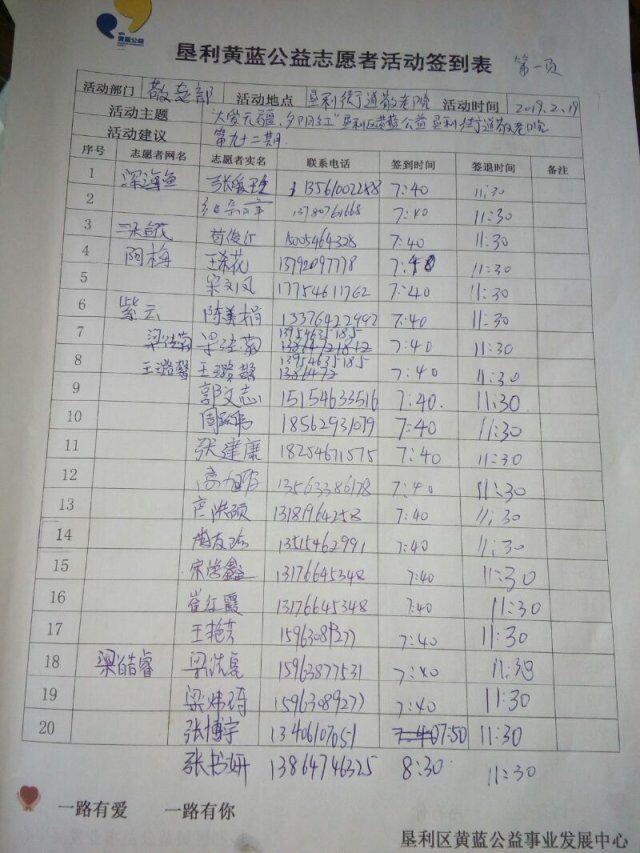 黄蓝公益
垦利黄蓝公益志愿者活动签到表 第一页
活动部门 敬老部 活动地点 垦利街道敬老院 活动时间 2019.2.19
活动主题 "大爱无疆,夕阳红"垦利区黄蓝公益 垦利街道敬老院
活动建议 第九十二期
序号 志愿者网名 志愿者实名 联系电话 签到时间 签退时间 备注
1 深海鱼 13561002288 7:40 11:30
2 13780761668 7:40 11:30
3 7:40 11:30
4 阿梅 王希花 13792097778 11:30
5 宋文凤 17754611762 7:40 11:30
6 紫云 陈美娟 13376422992 7:40 11:30
7 7:40 11:30
8 7:40 11:30
9 郭文志 15154633516 7:40 11:30
10 18562931079 7:40 11:30
11 张建廉 18254671575 7:40 11:30
12 13563386178 7:40 11:30
13 13181964258 7:40 11:30
14 13515462991 7:40 11:30
15 宋学鑫 13176645348 7:40 11:30
16 崔红霞 13176645348 7:40 11:30
17 王艳芳 15963089277 7:40 11:30
18 梁皓睿 15963877531 7:40 11:30
19 梁炜琦 15963089277 7:40 11:30
20 张博宇 13406107651 7:50 11:30
张书妍 13864746325 8:30 11:30
一路有爱 一路有你
垦利区黄蓝公益事业发展中心